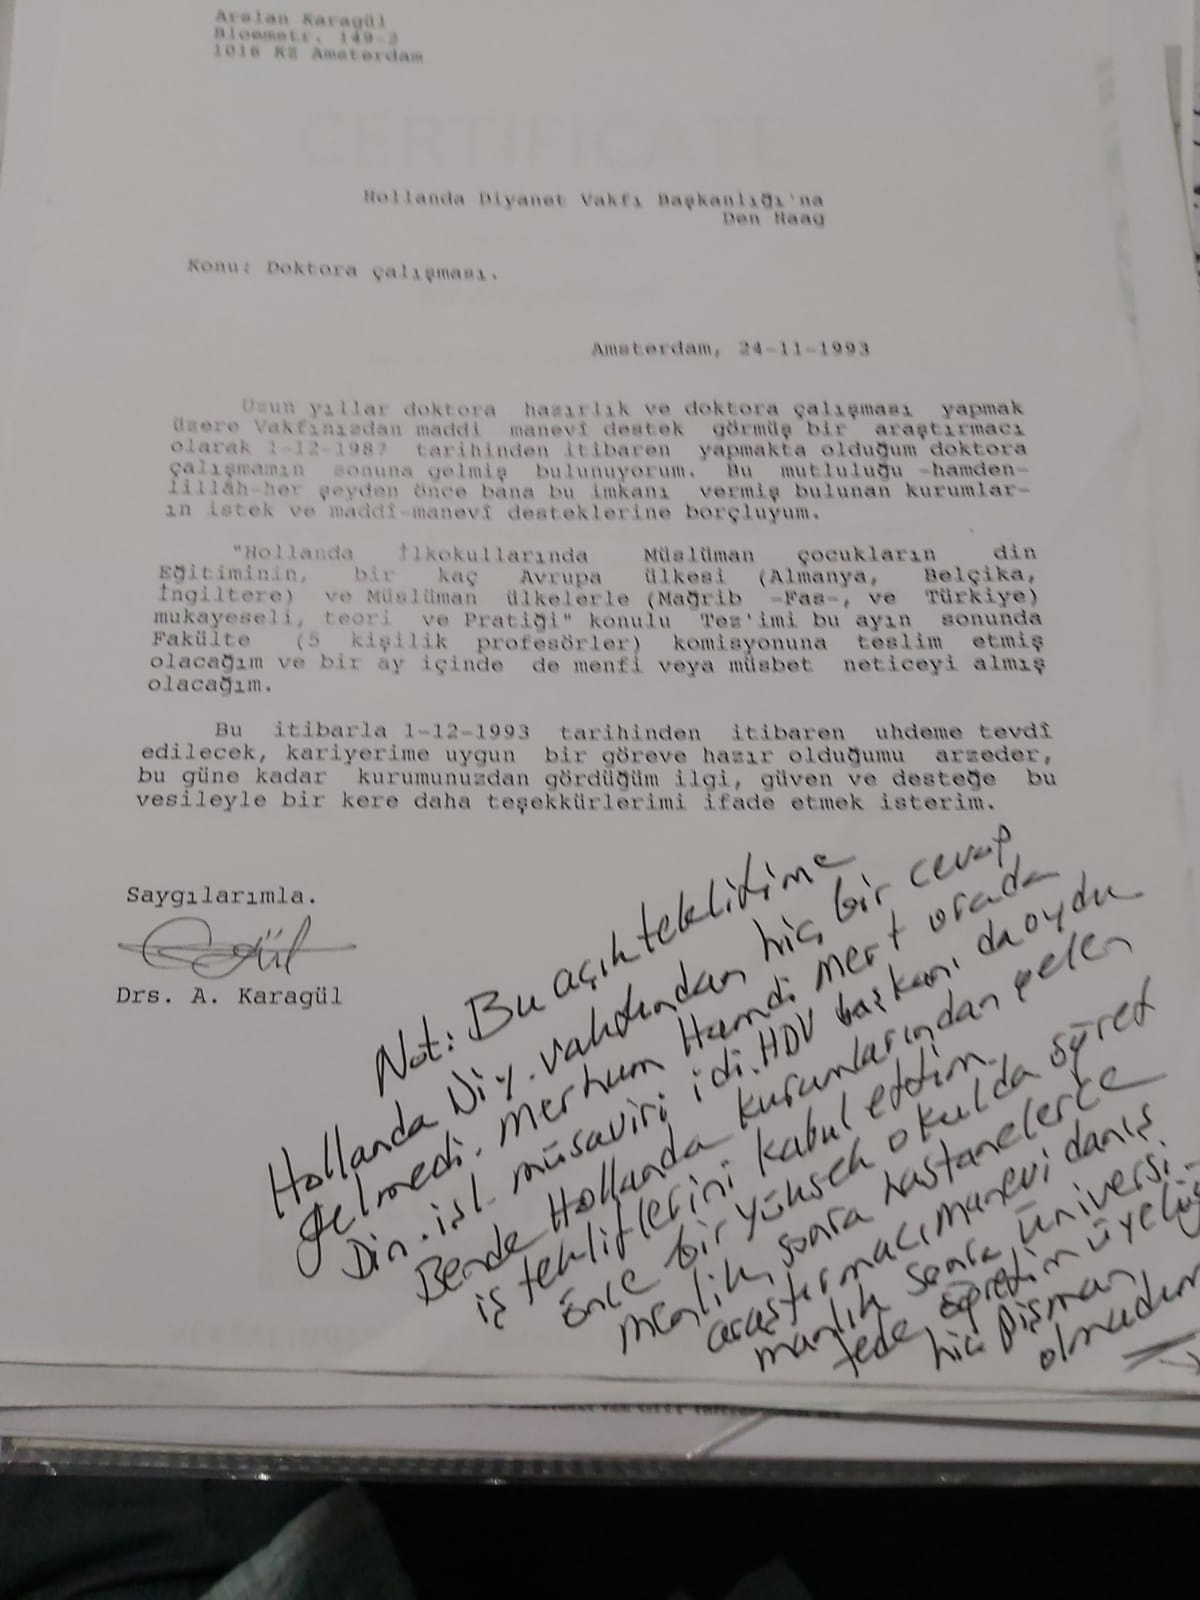 Arslan Karagül
Bloemstr. 149-2
1016 KZ Amsterdam
CERTIFICATE
Hollanda Diyanet Vakfı Başkanlığı'na
Den Haag
Konu: Doktora çalışması.
Amsterdam, 24-11-1993
Uzun yıllar doktora hazırlık ve doktora çalışması yapmak
üzere Vakfınızdan maddi manevî destek görmüş bir araştırmacı
olarak 1-12-1987 tarihinden itibaren yapmakta olduğum doktora
çalışmamın sonuna gelmiş bulunuyorum. Bu mutluluğu -hamden-
lillâh-her şeyden önce bana bu imkanı vermiş bulunan kurumlar-
ın istek ve maddî-manevî desteklerine borçluyum.
"Hollanda İlkokullarında Müslüman çocukların din
Eğitiminin, bir kaç Avrupa ülkesi (Almanya, Belçika,
İngiltere) ve Müslüman ülkelerle (Mağrib -Fas-, ve Türkiye)
mukayeseli, teori ve Pratiği" konulu Tez'imi bu ayın sonunda
Fakülte (5 kişilik profesörler) komisyonuna teslim etmiş
olacağım ve bir ay içinde de menfi veya müsbet neticeyi almış
olacağım.
Bu itibarla 1-12-1993 tarihinden itibaren uhdeme tevdî
edilecek, kariyerime uygun bir göreve hazır olduğumu arzeder,
bu güne kadar kurumunuzdan gördüğüm ilgi, güven ve desteğe bu
vesileyle bir kere daha teşekkürlerimi ifade etmek isterim.
Saygılarımla.
Drs. A. Karagül
Not: Bu açık teklifime
Hollanda Diy. vakfından hiç bir cevap
gelmedi. merhum Hamdi Mert orada
Din. işl. müsaviri idi. HDV başkanı da oydu
Bende Hollanda kurumlarından gelen
iş tekliflerini kabul ettim.
önce bir yüksek okulda öğret
menlik, sonra hastanelerce
araştırmacı manevi danış
manlık sonra üniversi-
tede öğretim üyeliği
hiç pişman
olmadım